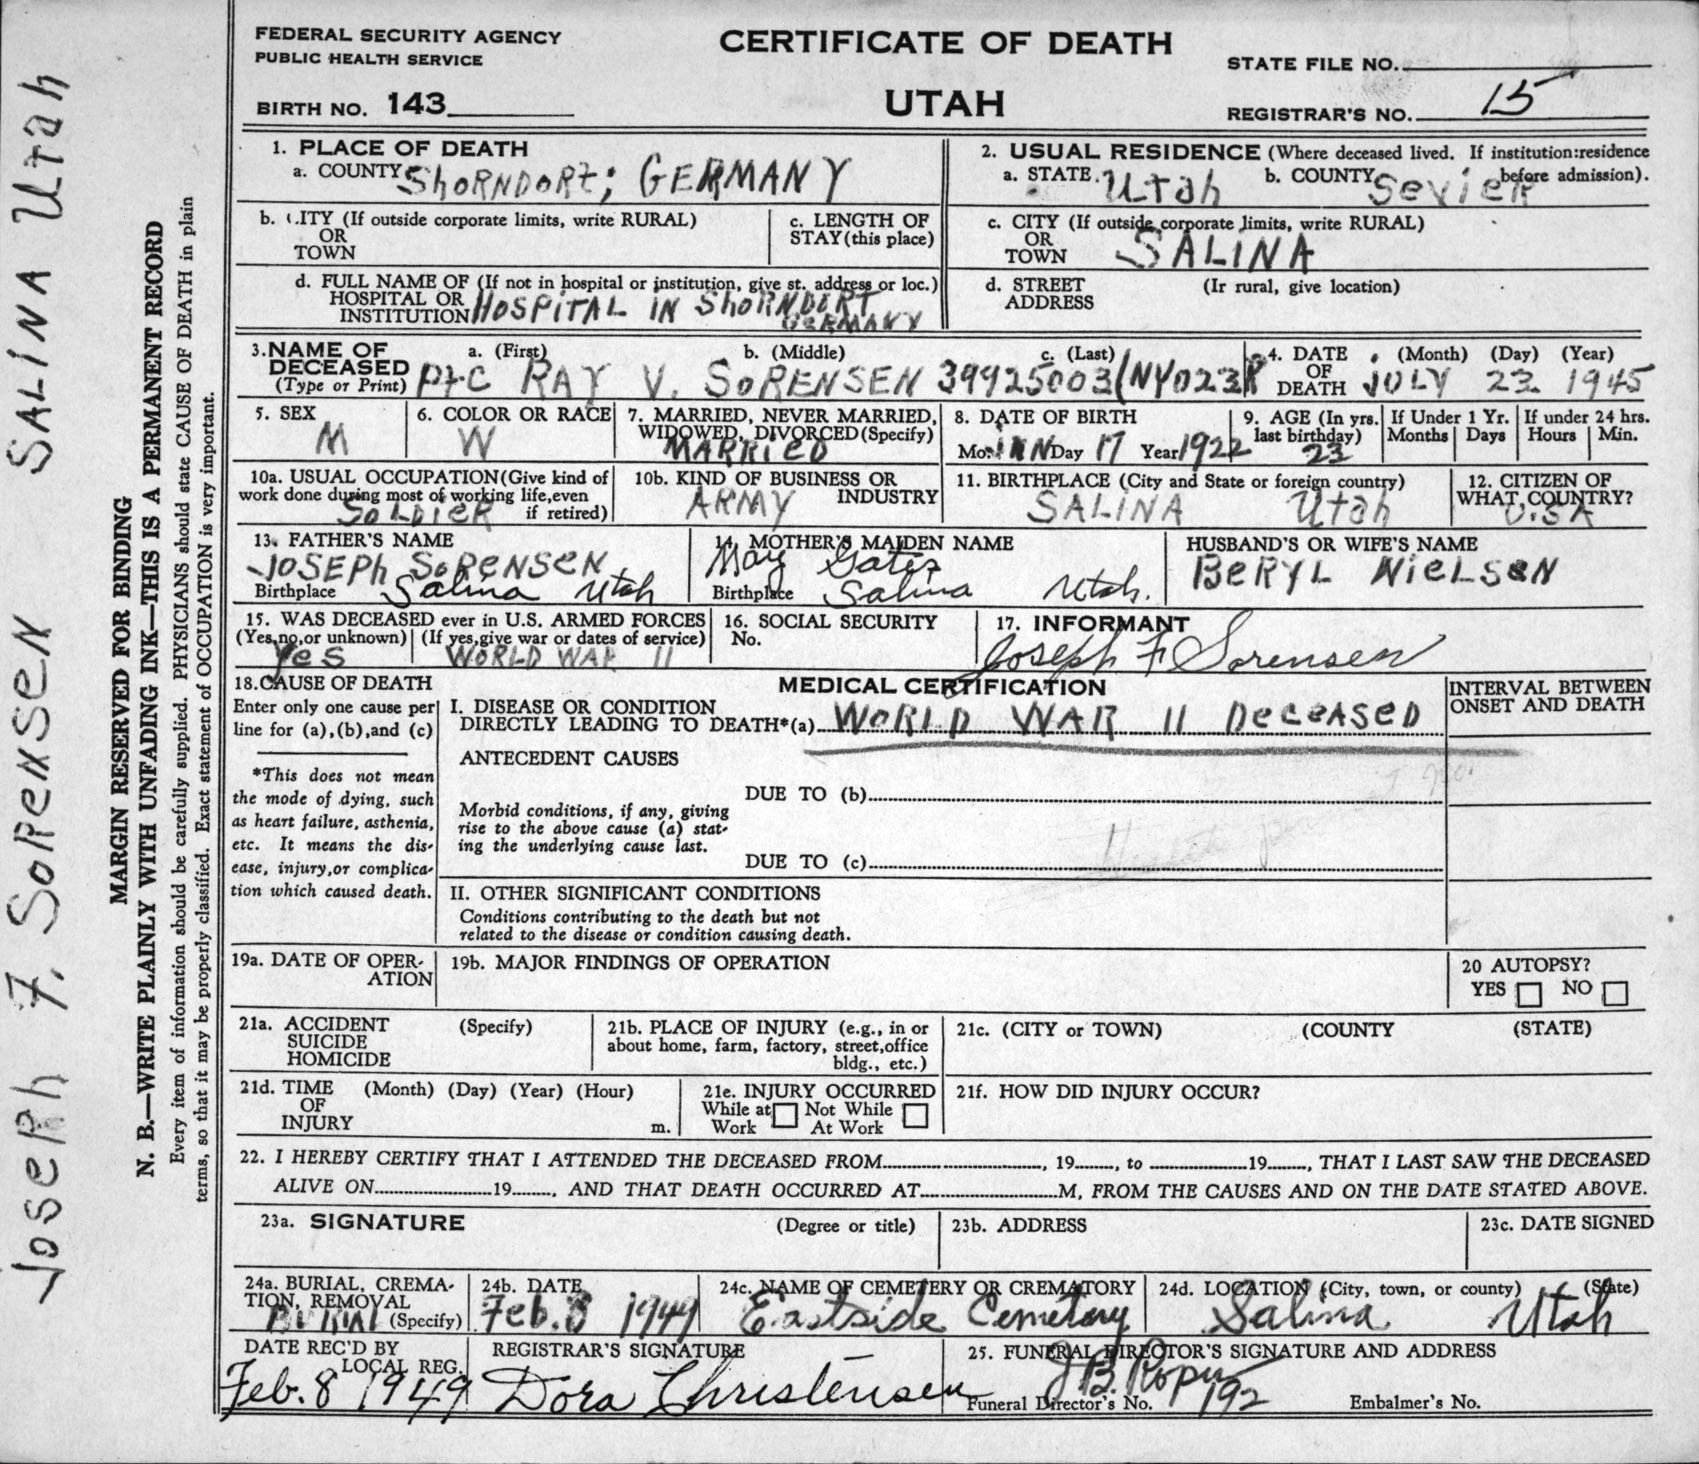 FEDERAL SECURITY AGENCY
PUBLIC HEALTH SERVICE
CERTIFICATE OF DEATH
STATE FILE NO.
BIRTH NO. 143
UTAH
REGISTRAR'S NO. 15
1. PLACE OF DEATH
a. COUNTY SHORNDORT; GERMANY
2. USUAL RESIDENCE (Where deceased lived. If institution:residence before admission).
a. STATE. Utah b. COUNTY SEVIER
b. CITY (If outside corporate limits, write RURAL)
OR
TOWN
c. LENGTH OF
STAY (this place)
c. CITY (If outside corporate limits, write RURAL)
OR
TOWN SALINA
d. FULL NAME OF (If not in hospital or institution, give st. address or loc.)
HOSPITAL OR
INSTITUTION HOSPITAL IN SHORNDORT
GERMANY
d. STREET (Ir rural, give location)
ADDRESS
3. NAME OF DECEASED (Type or Print)
a. (First) b. (Middle) c. (Last)
Pfc RAY V. SORENSEN 39925003 (NY023R
4. DATE OF DEATH (Month) (Day) (Year)
JULY 23 1945
5. SEX
M
6. COLOR OR RACE
W
7. MARRIED, NEVER MARRIED,
WIDOWED, DIVORCED (Specify)
MARRIED
8. DATE OF BIRTH
Mo. JAN Day 17 Year 1922
9. AGE (In yrs. last birthday)
23
If Under 1 Yr.
Months Days
If under 24 hrs.
Hours Min.
10a. USUAL OCCUPATION (Give kind of
work done during most of working life, even
if retired) SOLDIER
10b. KIND OF BUSINESS OR
INDUSTRY
ARMY
11. BIRTHPLACE (City and State or foreign country)
SALINA Utah
12. CITIZEN OF
WHAT COUNTRY?
U.S.A
13. FATHER'S NAME
JOSEPH SORENSEN
Birthplace Salina Utah
14. MOTHER'S MAIDEN NAME
May Gates
Birthplace Salina Utah.
HUSBAND'S OR WIFE'S NAME
BERYL NIELSEN
15. WAS DECEASED ever in U.S. ARMED FORCES
(Yes,no,or unknown) (If yes,give war or dates of service)
Yes WORLD WAR II
16. SOCIAL SECURITY
No.
17. INFORMANT
Joseph F Sorensen
18. CAUSE OF DEATH
Enter only one cause per
line for (a), (b), and (c)
*This does not mean
the mode of dying, such
as heart failure, asthenia,
etc. It means the dis-
ease, injury,or complica-
tion which caused death.
MEDICAL CERTIFICATION
INTERVAL BETWEEN
ONSET AND DEATH
I. DISEASE OR CONDITION
DIRECTLY LEADING TO DEATH*(a) WORLD WAR II DECEASED
ANTECEDENT CAUSES
DUE TO (b)
Morbid conditions, if any, giving
rise to the above cause (a) stat-
ing the underlying cause last.
DUE TO (c)
II. OTHER SIGNIFICANT CONDITIONS
Conditions contributing to the death but not
related to the disease or condition causing death.
19a. DATE OF OPER-
ATION
19b. MAJOR FINDINGS OF OPERATION
20 AUTOPSY?
YES NO
21a. ACCIDENT (Specify)
SUICIDE
HOMICIDE
21b. PLACE OF INJURY (e.g., in or
about home, farm, factory, street,office
bldg., etc.)
21c. (CITY or TOWN) (COUNTY (STATE)
21d. TIME (Month) (Day) (Year) (Hour)
OF
INJURY m.
21e. INJURY OCCURRED
While at Work Not While At Work
21f. HOW DID INJURY OCCUR?
22. I HEREBY CERTIFY THAT I ATTENDED THE DECEASED FROM, 19, to 19, THAT I LAST SAW THE DECEASED
ALIVE ON 19, AND THAT DEATH OCCURRED AT M, FROM THE CAUSES AND ON THE DATE STATED ABOVE.
23a. SIGNATURE (Degree or title)
23b. ADDRESS
23c. DATE SIGNED
24a. BURIAL, CREMA-
TION, REMOVAL
BURIAL (Specify)
24b. DATE
Feb. 8 1949
24c. NAME OF CEMETERY OR CREMATORY
Eastside Cemetery
24d. LOCATION (City, town, or county) (State)
Salina Utah
DATE REC'D BY
LOCAL REG.
Feb. 8 1949
REGISTRAR'S SIGNATURE
Dora Christensen
25. FUNERAL DIRECTOR'S SIGNATURE AND ADDRESS
J B. Roper
Funeral Director's No. 192 Embalmer's No.
JOSEPH F. SORENSEN SALINA Utah
MARGIN RESERVED FOR BINDING
N. B.—WRITE PLAINLY WITH UNFADING INK—THIS IS A PERMANENT RECORD
Every item of information should be carefully supplied. PHYSICIANS should state CAUSE OF DEATH in plain
terms, so that it may be properly classified. Exact statement of OCCUPATION is very important.